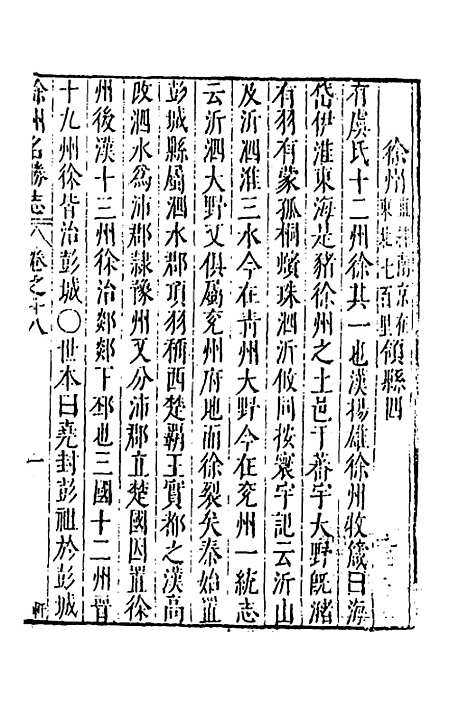 徐州東七百里領縣四
有虞氏十二州徐其一也漢揚雄徐州收箴曰海
岱伊淮東海是豬徐州之土邑于蕃宇大野旣潴
有羽有蒙孤桐蠙珠泗沂攸同按寰宇記云沂山
及沂泗淮三水今在靑州大野今在兖州一統志
云沂泗大野又俱屬兖州府地而徐裂矣秦始置
彭城縣屬泗水郡項羽稱西楚覇王實都之漢高
改泗水爲沛郡隷豫州又分沛郡立楚國因置徐
州後漢十三州徐治郯郯下邳也三國十二州晋
十九州徐皆治彭城〇世本曰堯封彭祖於彭城
徐州名勝志 卷之十八 一